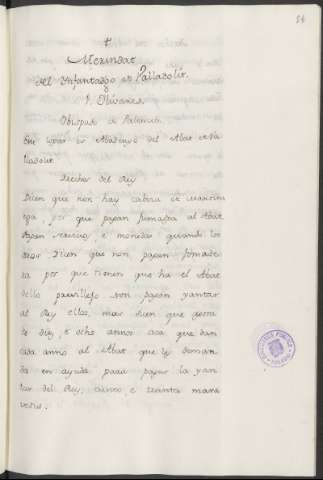 54
Merindat
del Ynfantadgo de Valladolit.
1. Olivares.
Obispado de Palencia.
Este logar es Abadengo del Abat de Va
lladolit.
Derechos del Rey
Dicen que non hay cabeza de martinie
ga por que pagan fumadga al Abat
Pagan servicios, e monedas quando los
otros Dicen que non pagan fonsade
ra por que tienen que ha el Abat
dello previllejo non pagan yantar
al Rey ellos, mas dicen que agora
diz, e ocho annos aca que dan
cada anno al Abat que les deman
da en ayuda para pagar la yan
tar del Rey, ciento, e treinta mara
vedis.